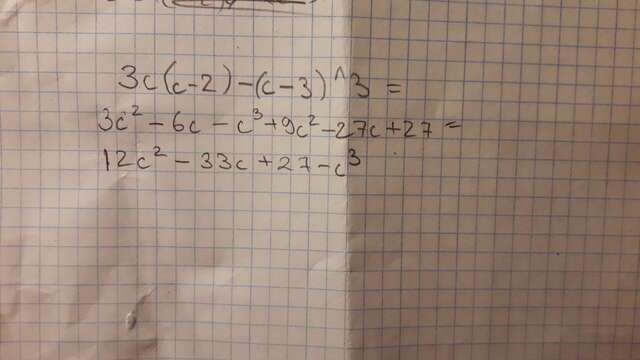 3c(c-2)-(c-3)^3=
3c²-6c-c³+9c²-27c+27=
12c²-33c+27-c³